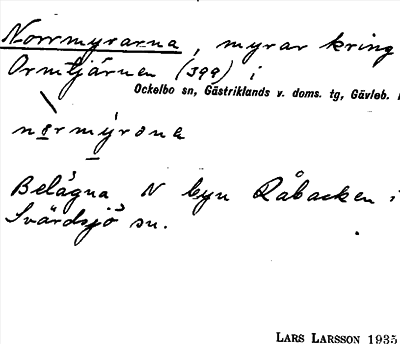 Norrmyrarna, myrar kring
Ormtjärnen (399) i
Ockelbo sn, Gästriklands v. doms. tg, Gävleb.
normýrone
Belägna N byn Råbacken i
Svärdsjö sn.
LARS LARSSON 1935